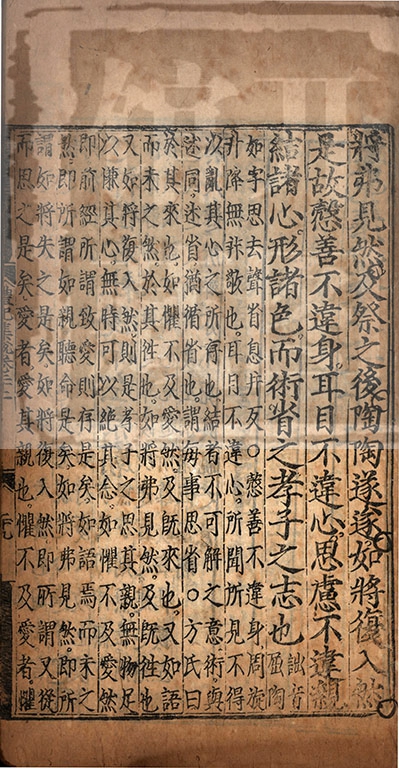 將弗見然及祭之後陶陶遂遂如將復入然
是故慤善不違身耳目不違心思慮不違親
結諸心形諸色而術省之孝子之志也詘音陶
如字思去聲省息井反○慤善不違身周旋
升降無非敬也耳目不違心所聞所見不得
以亂其心之所存也結者不可解之意術與
述同述省猶循省也謂每事思省○方氏曰
於其來也如懼不及愛然及旣來也又如語
而未之然於其徃也如將弗見然及旣徃也
又如將復入然則是孝子之思其親無物足
以慊其心無時可以絶其念如懼不及愛然
即前經所謂致愛則存是矣如語焉而未之
然即所謂如親聽命是矣如將弗見然即所
謂如將失之是矣如將復入然即所謂又從
而思之是矣愛者愛其親也懼不及愛者懼